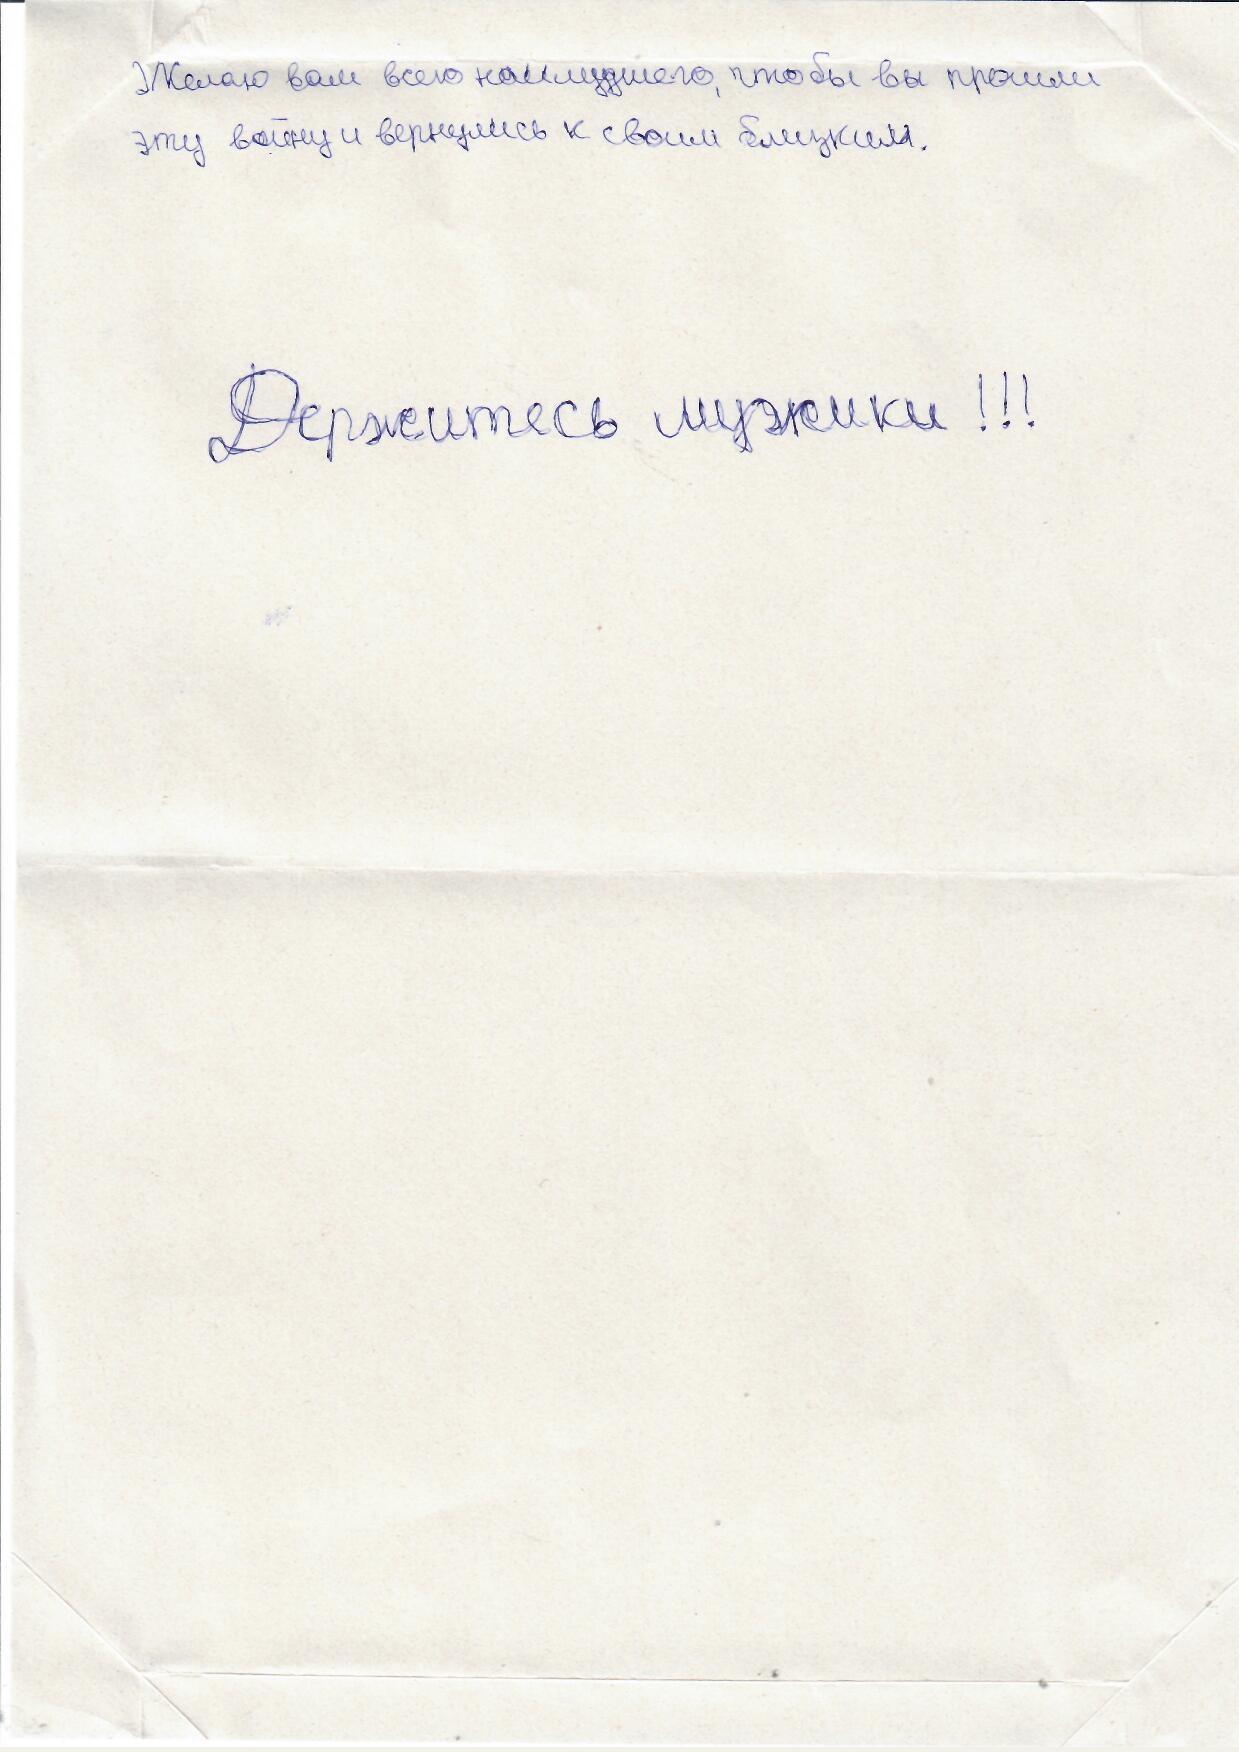 Желаю вам всего наилудшего, чтобы вы прошли
эту войну и вернулись к своим близким.
Держитесь мужики !!!